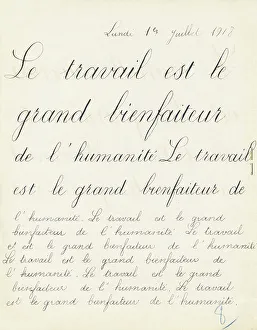 Lundi 14 Juillet 1917
Le travail est le
grand bienfaiteur
de l'humanité Le travail
est le grand bienfaiteur de
l'humanité. Le travail est le grand
bienfaiteur de l'humanité. Le travail
et est le grand bienfaiteur de l'humanité
Le travail est le grand bienfaiteur de
l'humanité. Le travail est le grand
bienfaiteur de l'humanité. Le travail
est le grand bienfaiteur de l'humanité.
8